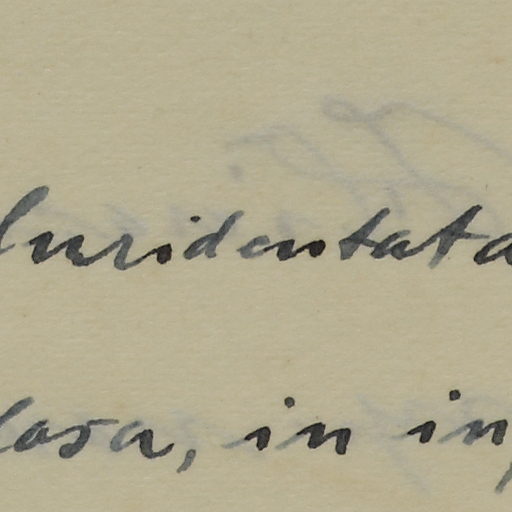 luridentata
losa, in in